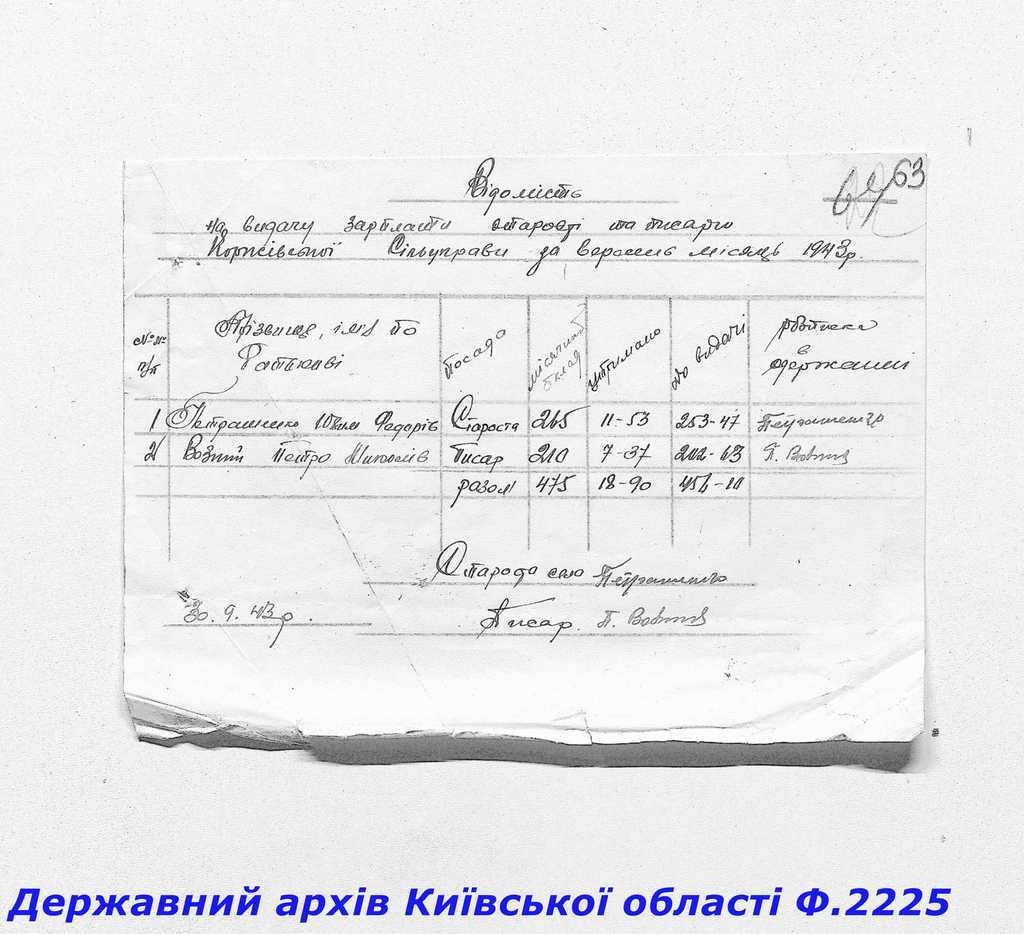 63
Відомість
на видачу зарплати старості та писарю
Коржівської Сільуправи за вересень місяць 1943р.
№№ п/п Прізвище, ім'я по Батькові посада місячний оклад утримано до видачі розписка в одержанні
1 Петрашенко Юхим Федорів Староста 265 11-53 253-47 Петрашенко
2 Возний Петро Миколаїв Писар 210 7-37 202-63 П. Возний
разом 475 18-90 456-10
Староста села Петрашенко
30. 9. 43р. Писар. П. Возний
Державний архів Київської області Ф.2225